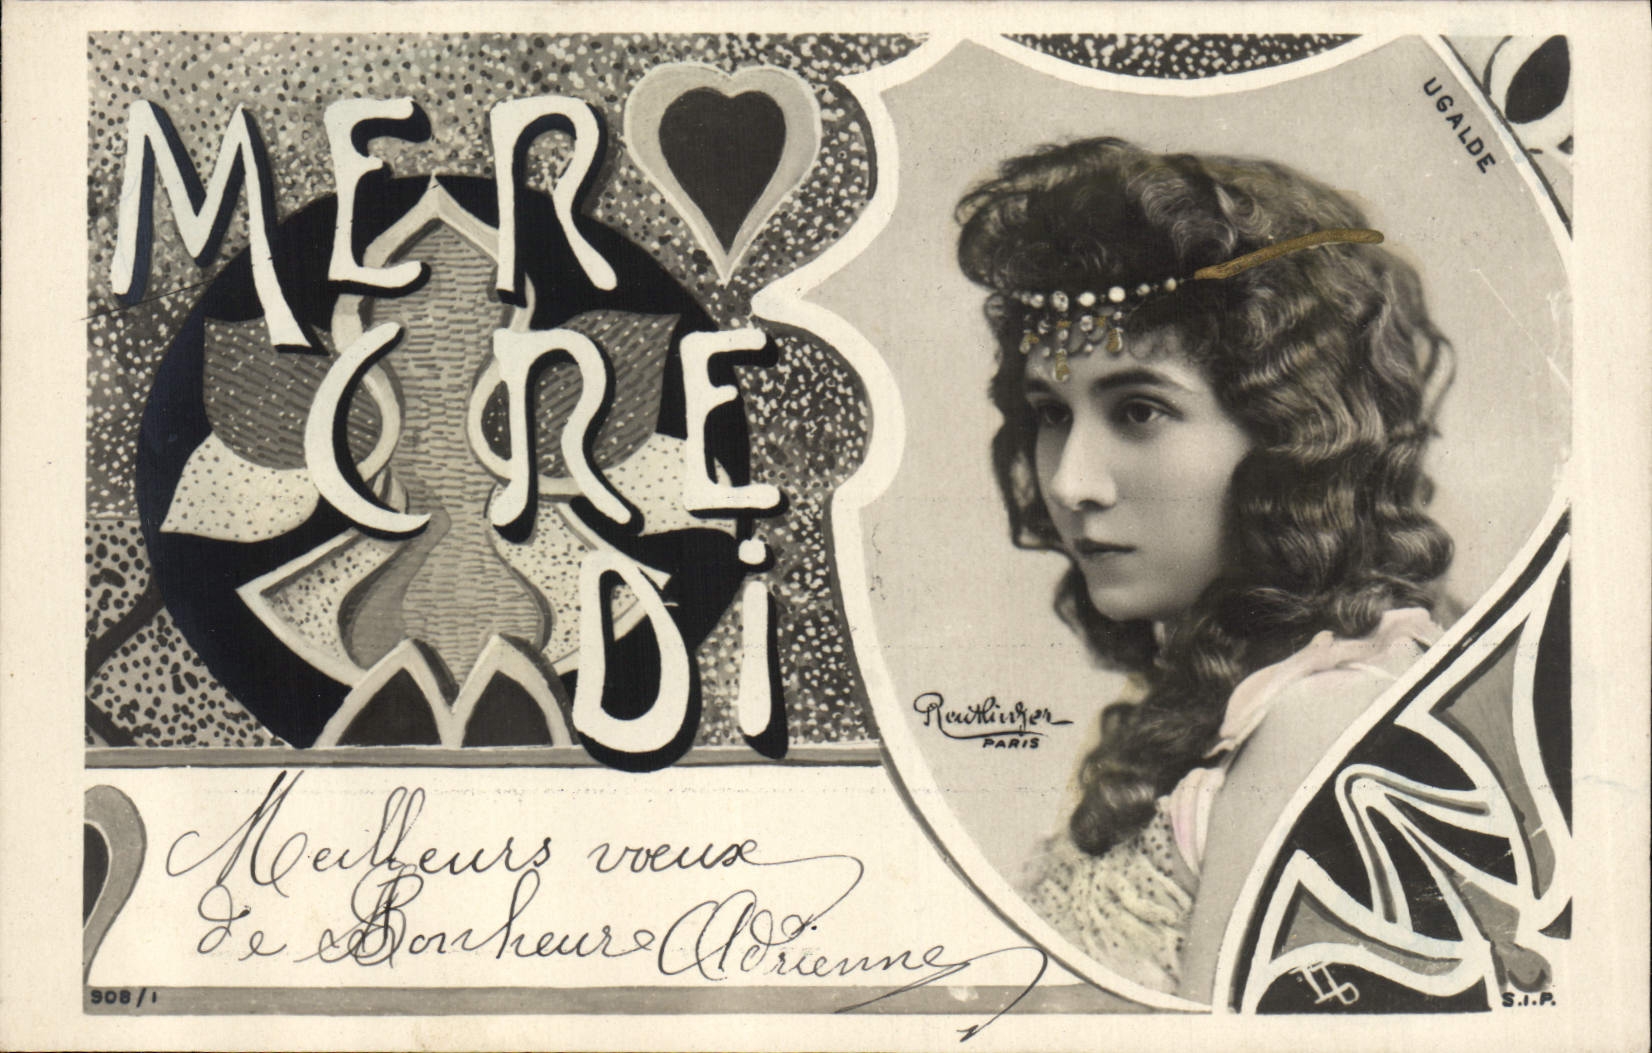 MER
CRE
Di
UGALDE
Reutlinger
PARIS
Meilleurs vœux
de Bonheure Adrienne
908/1
S.I.P.